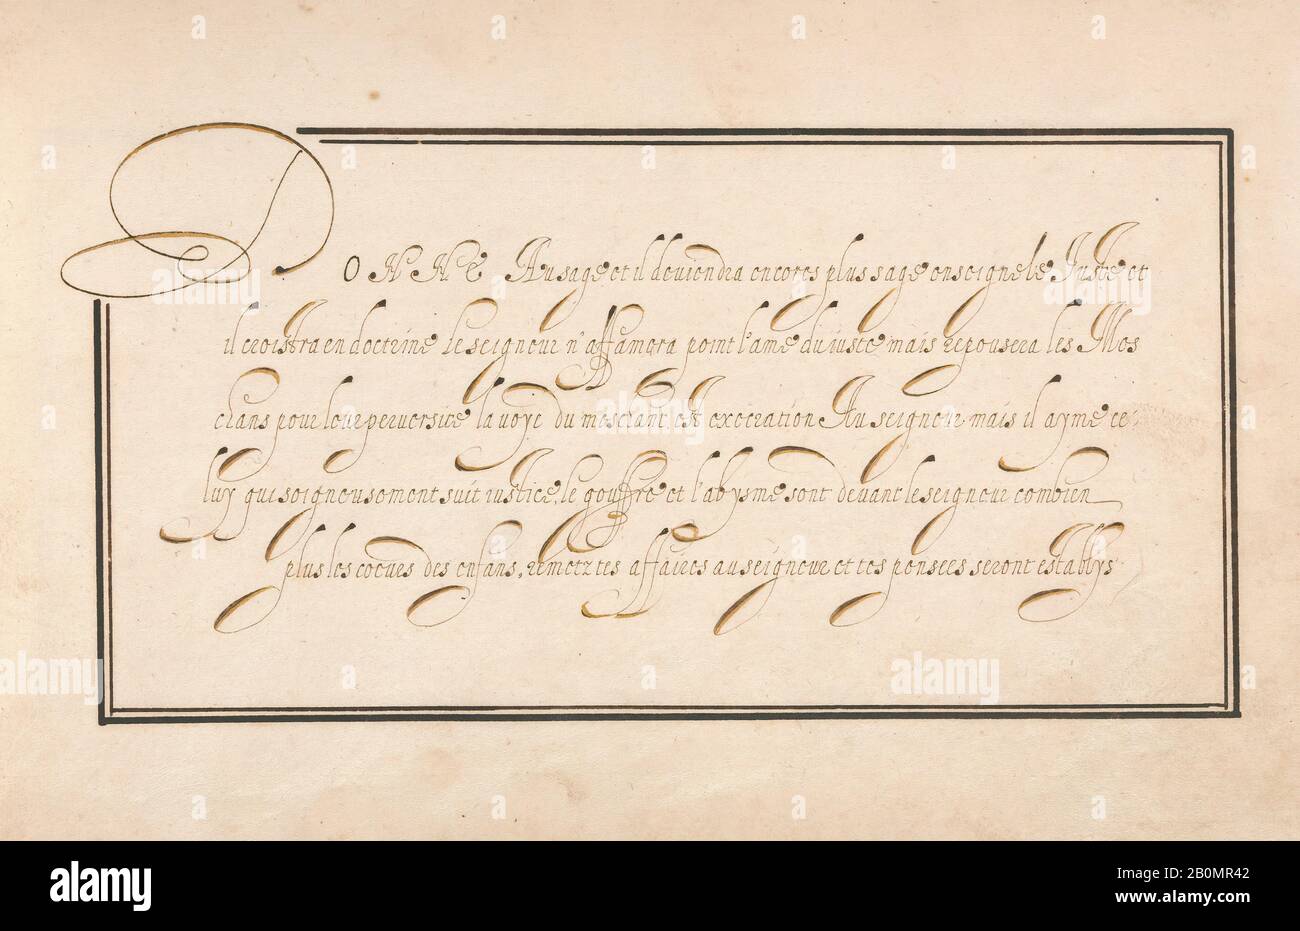 DONNE Au sage et il deviendra encores plus sage enseigne le Juste et
il croistra en doctrine le seigneur n'affamera point l'ame du iuste mais repousera les Mes
chans pour leur perversite la voye du meschant est execration Au seigneur mais il ayme ce-
luy qui soigneusement suit iustice, le gouffre et l'abysme sont devant le seigneur combien
plus les coeurs des enfans, remetz tes affaires au seigneur et tes pensees seront establys
alamy
Image ID: 2B0MR42
www.alamy.com